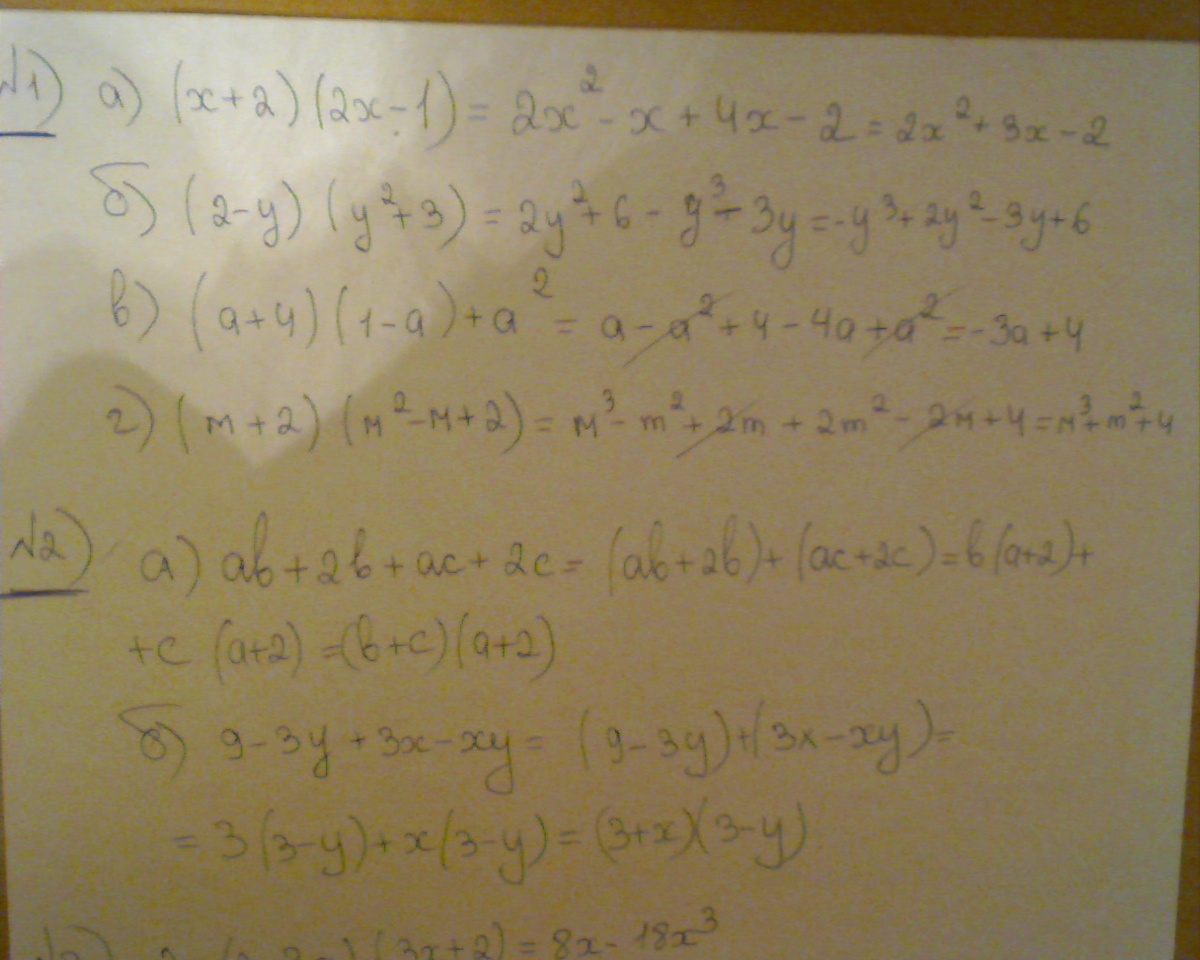 №1) а) (x+2)(2x-1) = 2x² - x + 4x - 2 = 2x² + 3x - 2
б) (2-y)(y²+3) = 2y² + 6 - y³ - 3y = -y³ + 2y² - 3y + 6
в) (a+4)(1-a) + a² = a - a² + 4 - 4a + a² = -3a + 4
г) (m+2)(m²-m+2) = m³ - m² + 2m + 2m² - 2m + 4 = m³ + m² + 4
№2) а) ab + 2b + ac + 2c = (ab+2b) + (ac+2c) = b(a+2) +
+ c (a+2) = (b+c)(a+2)
б) 9 - 3y + 3x - xy = (9-3y) + (3x-xy) =
= 3(3-y) + x(3-y) = (3+x)(3-y)
(3x+2) = 8x - 18x³